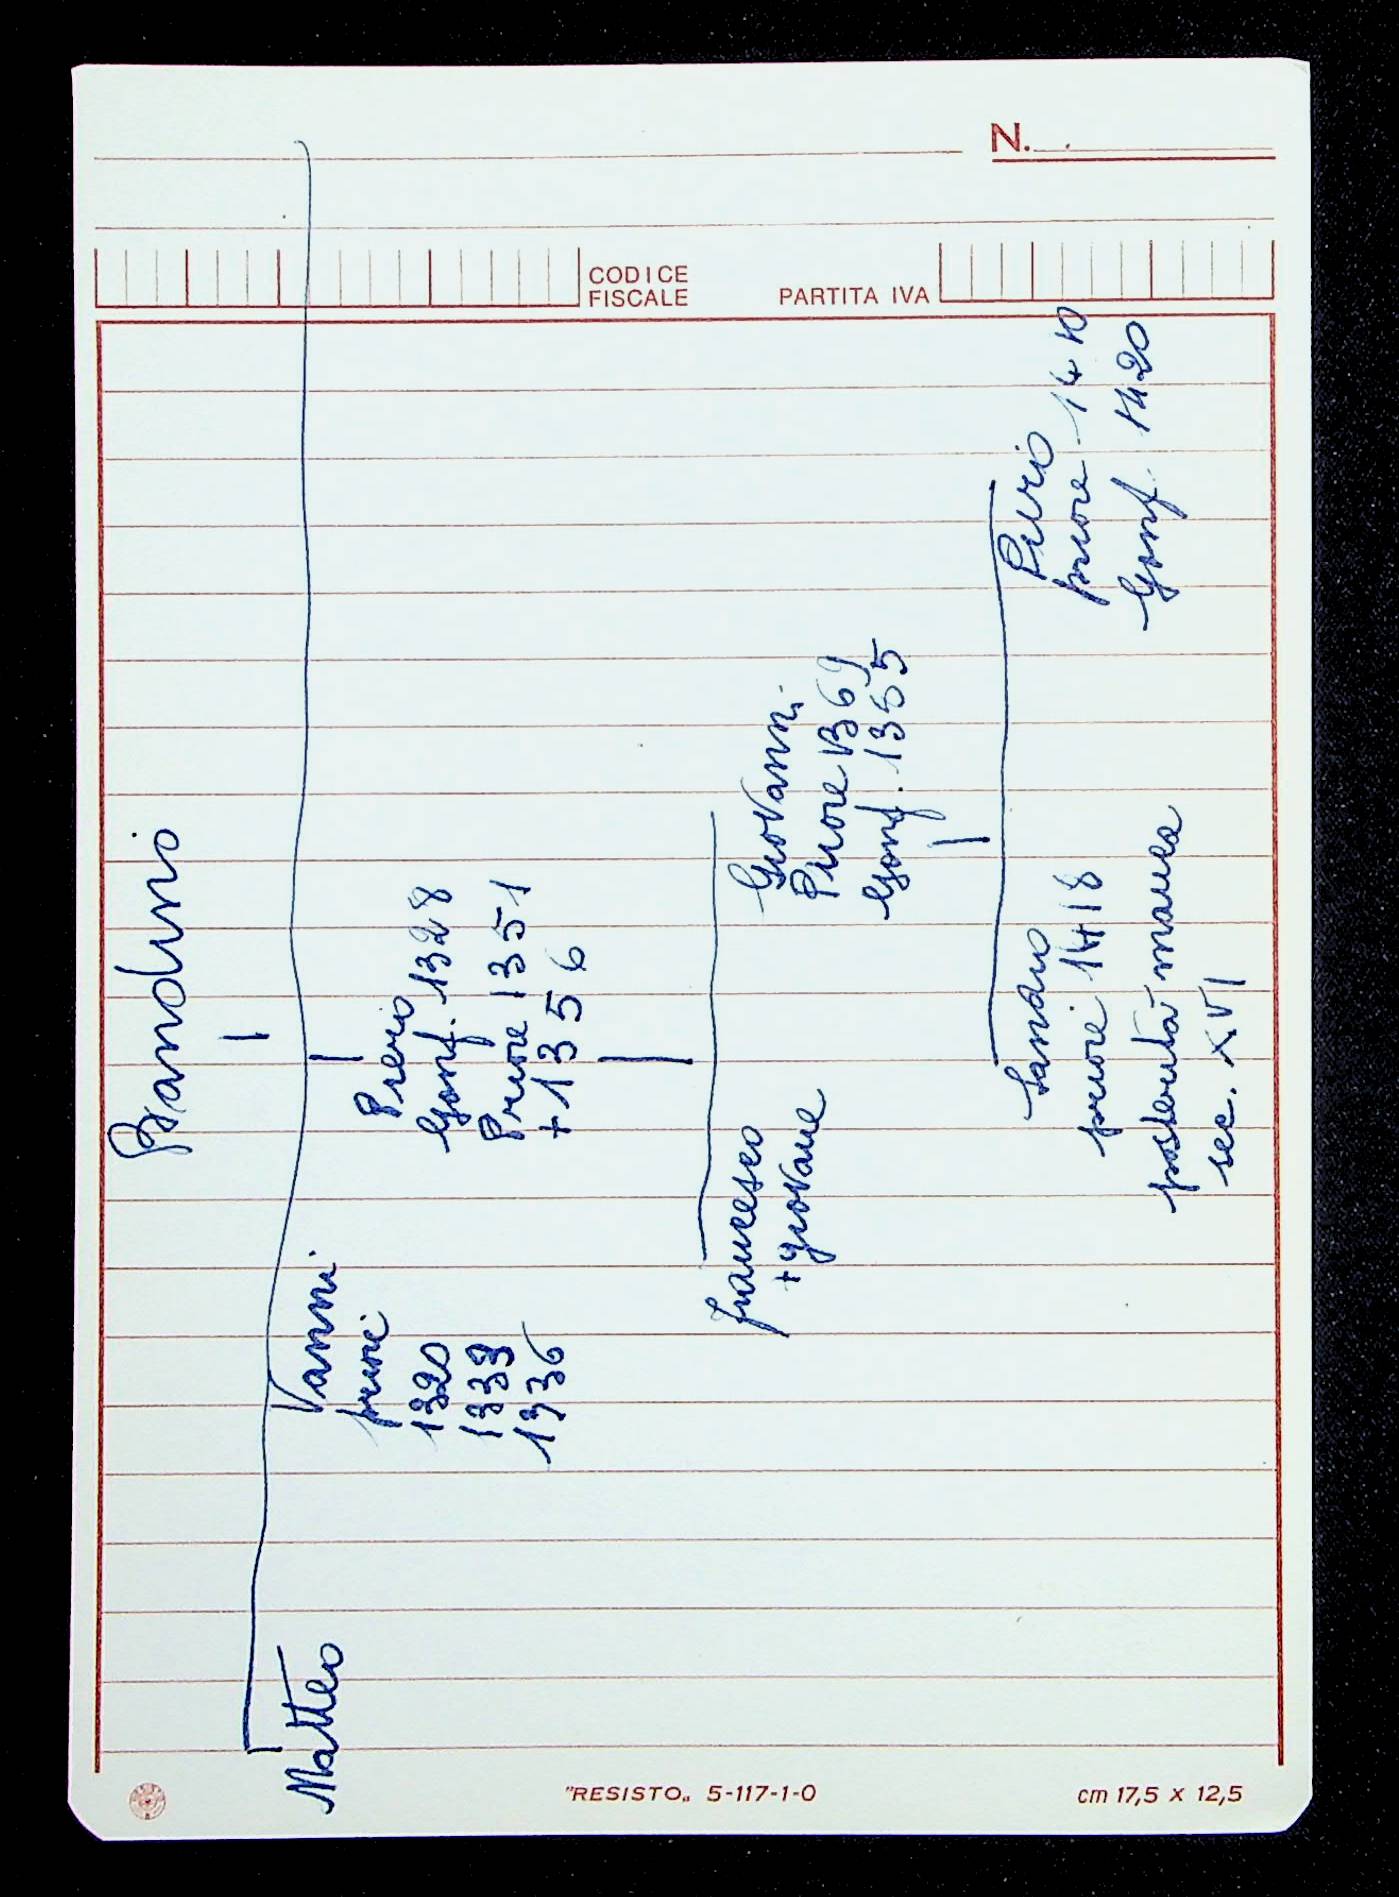 N.
CODICE
FISCALE
PARTITA IVA
Brandino
Matteo
Vanni
priore
1320
1333
1336
Pierio
Gonf. 1328
Priore 1351
+ 1356
Francesco
+ giovane
Giovanni
Priore 1369
Gonf. 1365
Sandro
priore 1418
posterità manca
sec. XVI
Pierio
priore 1410
Gonf. 1420
"RESISTO„ 5-117-1-0
cm 17,5 x 12,5